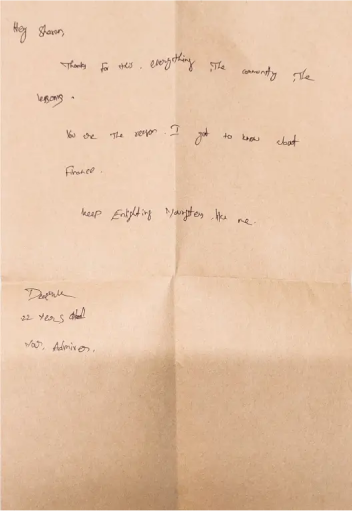 Hey Sharan,
Thanks for everything, The community, The
lessons.
You are The reason I got to know about
Finance.
keep Youngsters like me.
22 Years old
Your Admirer.